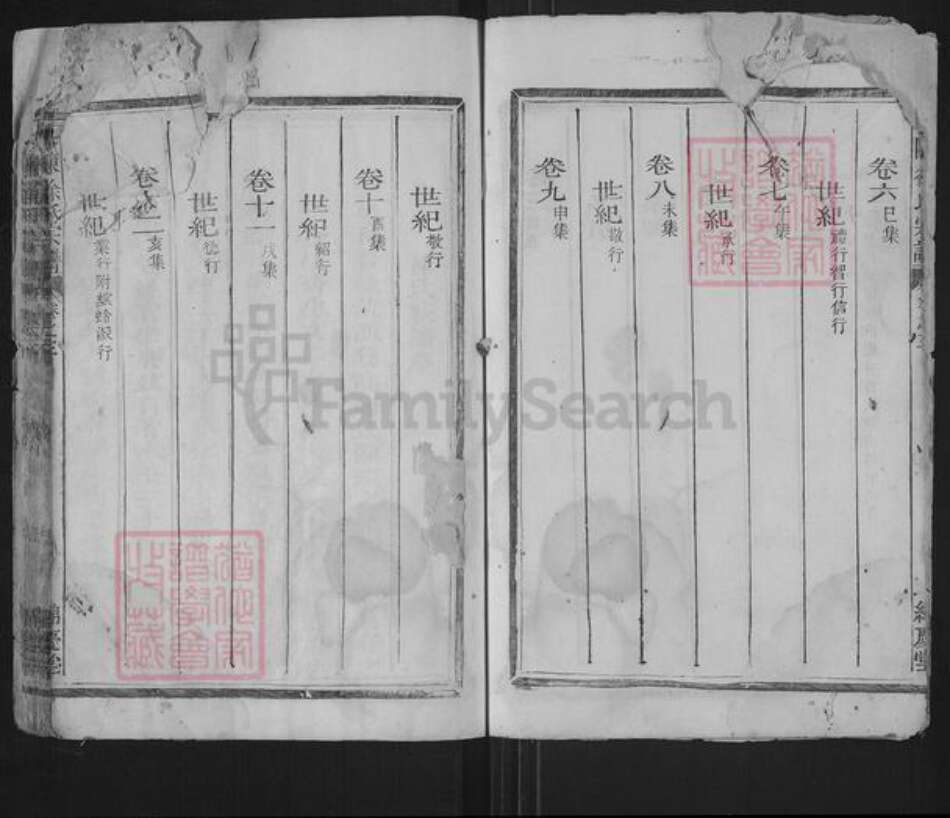 卷六巳集
世紀禮行智行信行
卷七午集
世紀承行
卷八未集
世紀敬行
卷九申集
世紀敬行
卷十酉集
世紀紹行
卷十一戌集
世紀
卷十二亥集
世紀
FamilySearch
譜學會
收藏